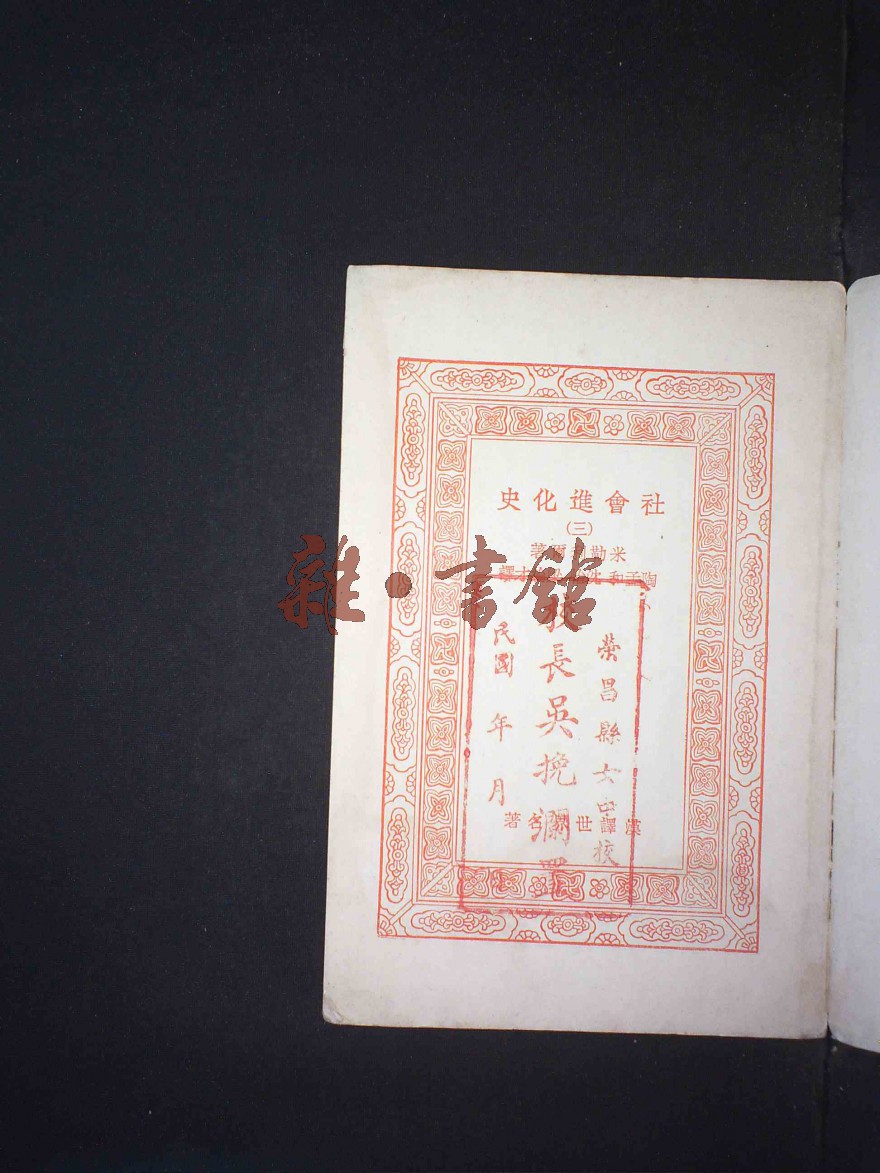 社會進化史
(三)
米勒利爾著
陶孟和
譯
漢譯世界名著
榮昌縣女中校
校長吳挽瀾置
民國 年 月
雜·書館